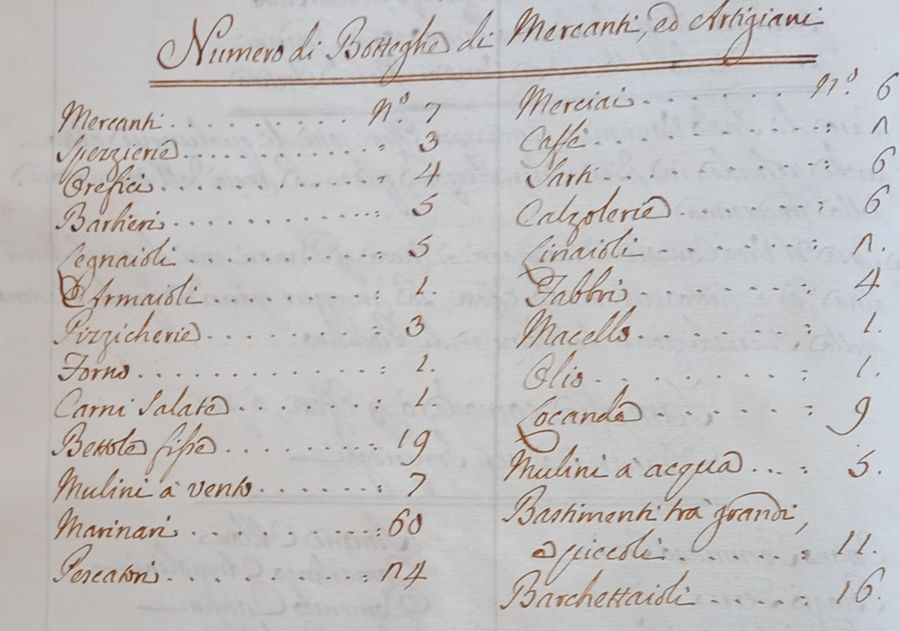 Numero di Botteghe di Mercanti, ed Artigiani
Mercanti . . . . . . . . . . n.° 7
Spezzierie . . . . . . . . . . 3
Orefici . . . . . . . . . . 4
Barbieri . . . . . . . . . . 5
Legnaioli . . . . . . . . . 5
Armaioli . . . . . . . . 1.
Pizzicherie . . . . . . . . 3
Forno . . . . . . . . . . 1.
Carni Salate . . . . . . . . 1
Bettole fisse . . . . . . . . 19
Mulini à vento . . . . . . . 7
Marinari . . . . . . . . . . 60
Pescatori . . . . . . . . . . 24
Merciai . . . . . . . n.° 6
Caffè . . . . . . . . . . 2
Sarti . . . . . . . . . . 6
Calzolerie . . . . . . . 6
Linaioli . . . . . . . . 2.
Fabbri . . . . . . . . . 4
Macello . . . . . . . . . 1.
Olio . . . . . . . . . . 1.
Locande . . . . . . . . 9
Mulini à acqua . . . . 5.
Bastimenti trà grandi,
e piccoli . . . . . . . 11.
Barchettaioli . . . . . . 16.